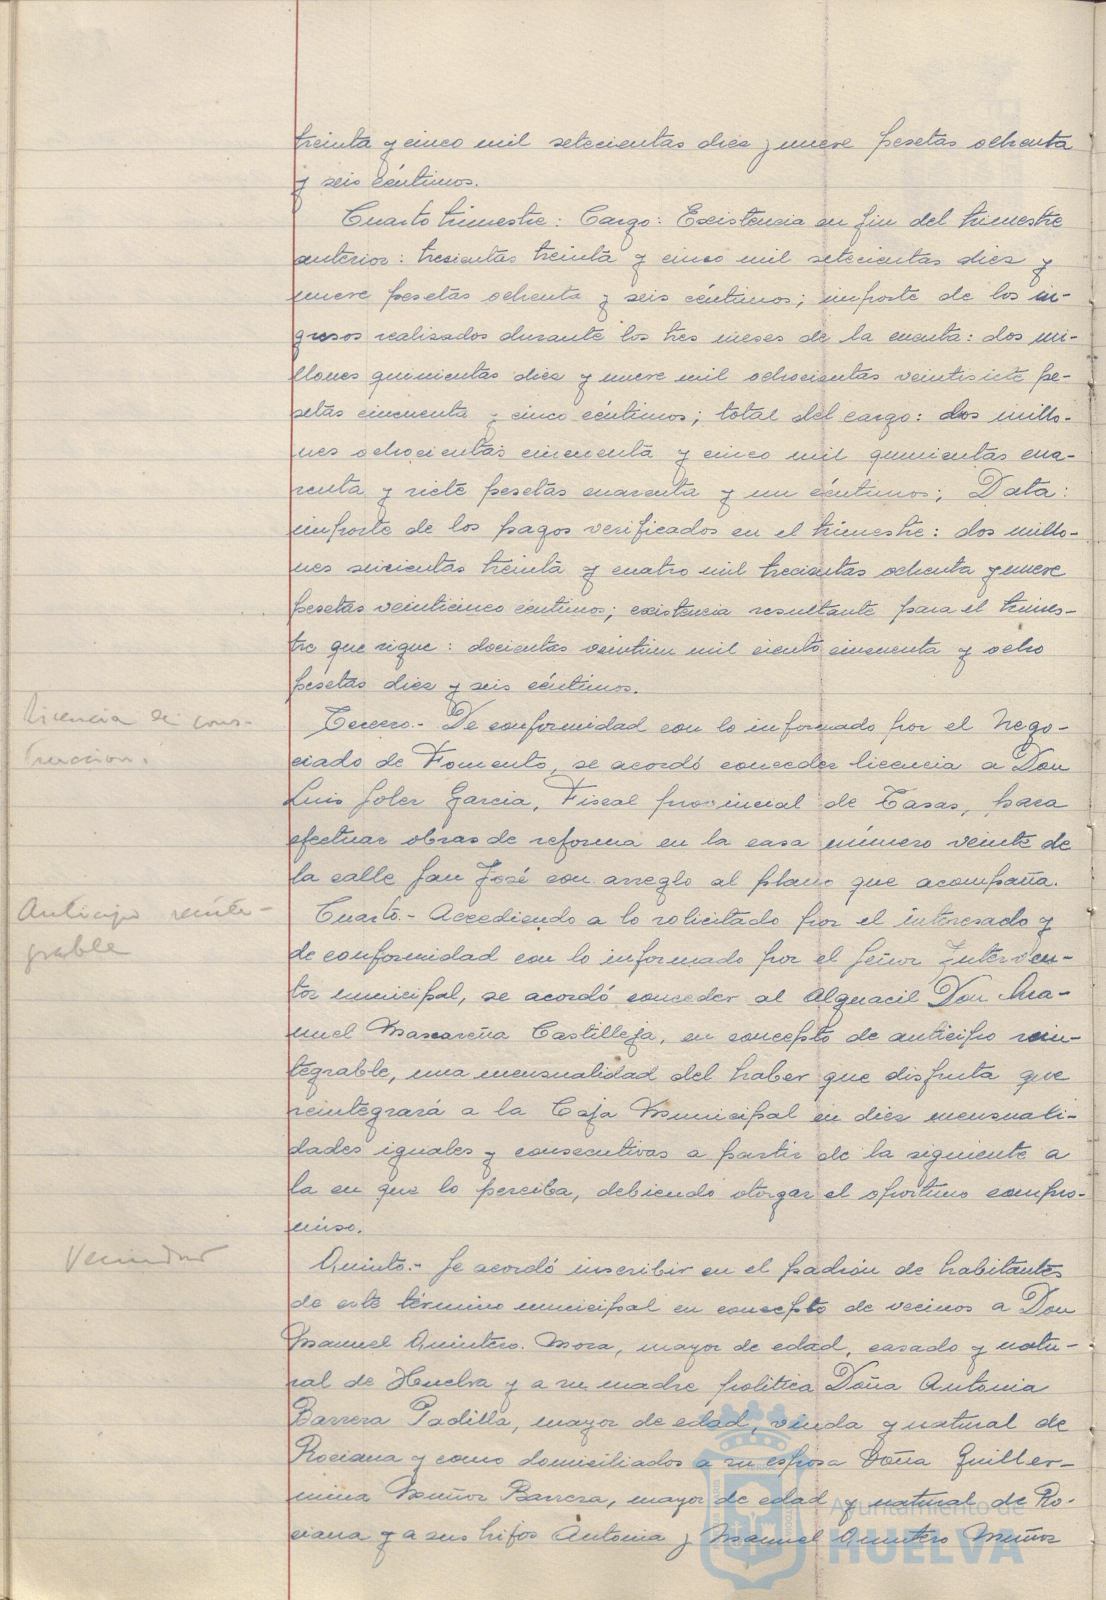 treinta y cinco mil setecientas diez y nueve pesetas ochenta
y seis céntimos.
Cuarto trimestre: Cargo: Existencia en fin del trimestre
anterior: trescientas treinta y cinco mil setecientas diez y
nueve pesetas ochenta y seis céntimos; importe de los in-
gresos realizados durante los tres meses de la cuenta: dos mi-
llones quinientas diez y nueve mil ochocientas veintisiete pe-
setas cincuenta y cinco céntimos; total del cargo: dos millo-
nes ochocientas cincuenta y cinco mil quinientas cua-
renta y siete pesetas cuarenta y un céntimos; Data:
importe de los pagos verificados en el trimestre: dos millo-
nes seiscientas treinta y cuatro mil trescientas ochenta y nueve
pesetas veinticinco céntimos; existencia resultante para el trimes-
tre que sigue: doscientas veintiun mil ciento cincuenta y ocho
pesetas diez y seis céntimos.
Licencia de cons-
trucción.
Tercero.- De conformidad con lo informado por el Nego-
ciado de Fomento, se acordó conceder licencia a Don
Luis Soler García, Fiscal provincial de Tasas, para
efectuar obras de reforma en la casa número veinte de
la calle San José con arreglo al plano que acompaña.
Anticipo reinte-
grable
Cuarto.- Accediendo a lo solicitado por el interesado y
de conformidad con lo informado por el Señor Interven-
tor municipal, se acordó conceder al Alguacil Don Ma-
nuel Mascareña Castilleja, en concepto de anticipo rein-
tegrable, una mensualidad del haber que disfruta que
reintegrará a la Caja Municipal en diez mensuali-
dades iguales y consecutivas a partir de la siguiente a
la en que lo perciba, debiendo otorgar el oportuno compro-
miso.
Vecindad
Quinto.- Se acordó inscribir en el padrón de habitantes
de este término municipal en concepto de vecinos a Don
Manuel Quintero Mora, mayor de edad, casado y natu-
ral de Huelva y a su madre política Doña Antonia
Barrera Padilla, mayor de edad, viuda y natural de
Rociana y como domiciliados a su esposa Doña Guiller-
mina Muñoz Barrera, mayor de edad y natural de Ro-
ciana y a sus hijos Antonia y Manuel Quintero Muñoz
Ayuntamiento de
HUELVA